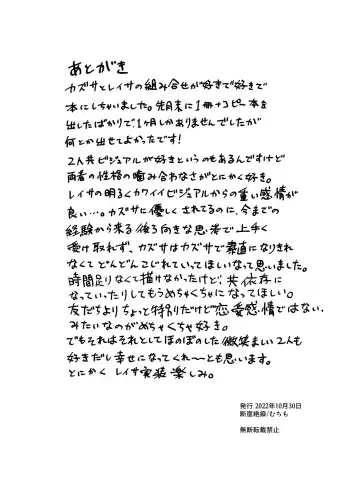 あとがき
カズサとレイサの組み合せが好きで好きで
本にしちゃいました。先月末に1冊+コピー本を
出したばかりで1ヶ月しかありませんでしたが
何とか出せてよかったです!
2人共ビジュアルが好きというのもあるんですけど
両者の性格の噛み合わなさがとにかく好き。
レイサの明るくカワイイビジュアルからの重い感情が
良い…。カズサに優しくされてるのに、今までの
経験から来る後ろ向きな思考で上手く
受け取れず、カズサはカズサで素直になりきれ
なくてどんどんこじれていってほしいなって思いました。
時間足りなくて描けなかったけど、共依存に
なっていったりしてもうめちゃくちゃになってほしい。
友だちよりちょっと特別だけど恋愛感情ではない、
みたいなのがめちゃくちゃ好き。
でもそれはそれとしてほのぼのした微笑ましい2人も
好きだし幸せになってくれ〜とも思います。
とにかくレイサ実装楽しみ。
発行 2022年10月30日
断崖絶癖/むちも
無断転載禁止